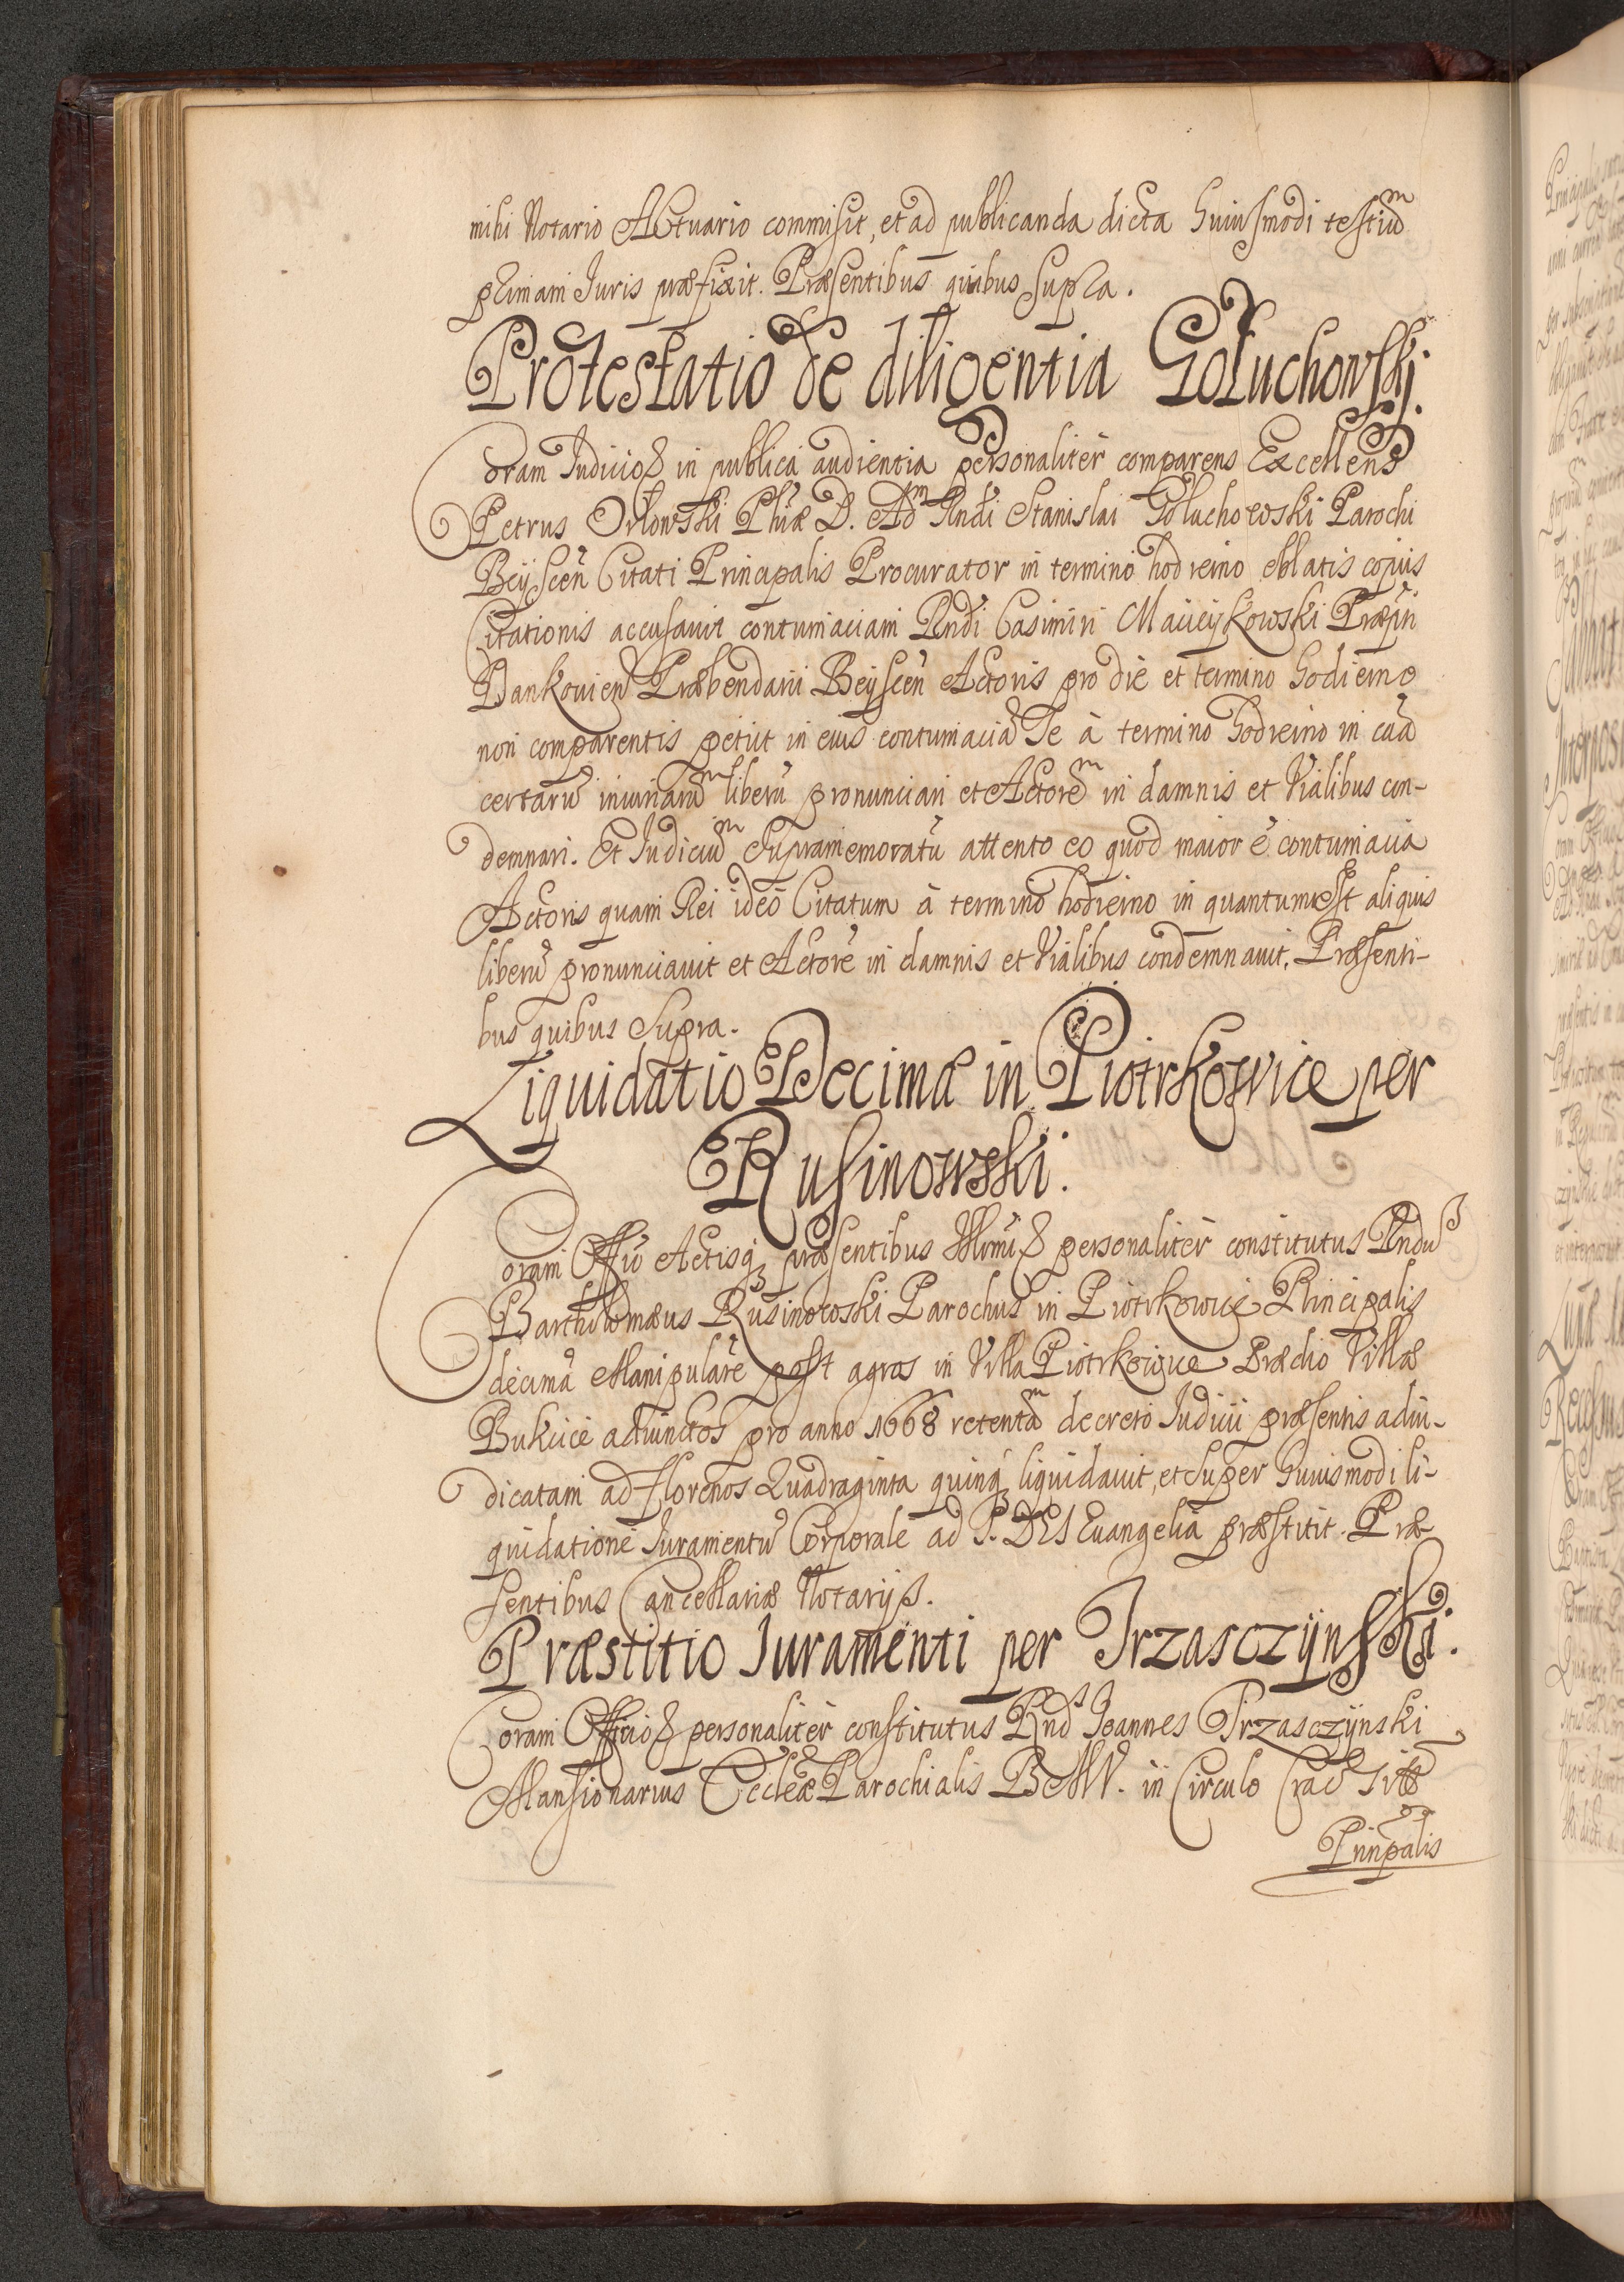 mihi Notario Actuario commisit, et ad publicanda dicta huiusmodi testiũm
ꝑlimam Iuris præfixit. Præsentibus quibus supra.
Protestatio de diligentia Gołuchowskj.
Coram Iudicio& in publica audientia personaliter comparens Excellens
Petrus Orłowski Phiæ D. Adm Rndi Stanislai Gołuchowski Parochi
Beyscen̄ Citati Principalis Procurator in termino hodierno oblatis copijs
Citationis accusavit contumaciam Rndi Casimiri Macieykowski Præpti
Bankouien̄ Præbendarii Beyscen̄ Actoris pro die et termino hodierno
non comparentis petiit in eius contumaciã Se à termino hodierno in caã
certarũ iniuriarũm liberũ pronunciari et Actorẽm in damnis et Vialibus con-
demnari. Et Iudiciũm Supramemoratũ attento eo quod maior ẽ contumacia
Actoris quam Rei ideo Citatum à termino hodierno in quantum est aliquis
liberũ pronunciauit et Actorẽ in damnis et Vialibus condemnauit. Præsenti-
bus quibus Supra.
Liquidatio Decimæ in Piotrkowice per
Rusinowski.
Coram Offio Actisq; præsentibus Illrmi& personaliter constitutus Rndus
Bartholomæus Rusinowski Parochus in Piotrkowice Principalis
decimã Manipularẽ post agros in Villa Piotrkowice Prædio Villæ
Bukcice adiunctos pro anno 1668 retentãm decreto Iudicii præsentis adiu-
dicatam ad florenos Quadraginta quinq; liquidauit, et super huiusmodi li-
quidationẽ Iuramentũ Corporale ad S. DEI Euangelia præstitit. Præ-
sentibus Cancellariæ Notarijs.
Præstitio Iuramenti per Trzasczynski.
Coram Officio& personaliter constitutus Rnds Ioannes Trzasczynski
Mansionarius Eccleæ Parochialis BMV. in Circulo Crac̃ Sitæ
Prinpalis